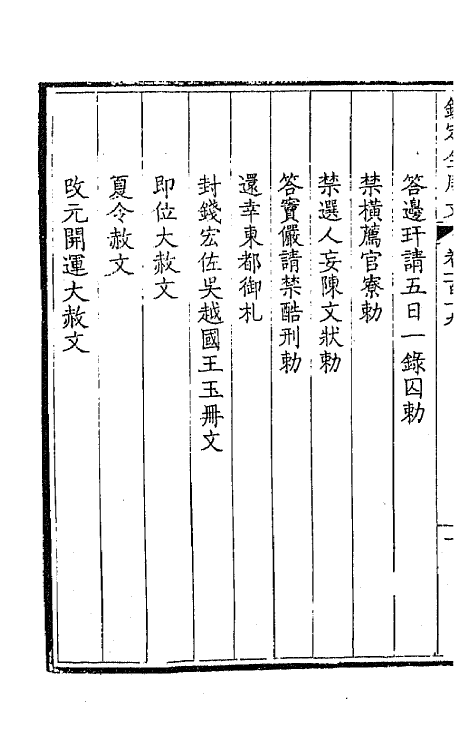 欽定全唐文 卷一百十九
答邊玗請五日一錄囚勅
禁橫薦官寮勅
禁選人妄陳文狀勅
答竇儼請禁酷刑勅
還幸東都御札
封錢宏佐吳越國王玉冊文
即位大赦文
夏令赦文
改元開運大赦文